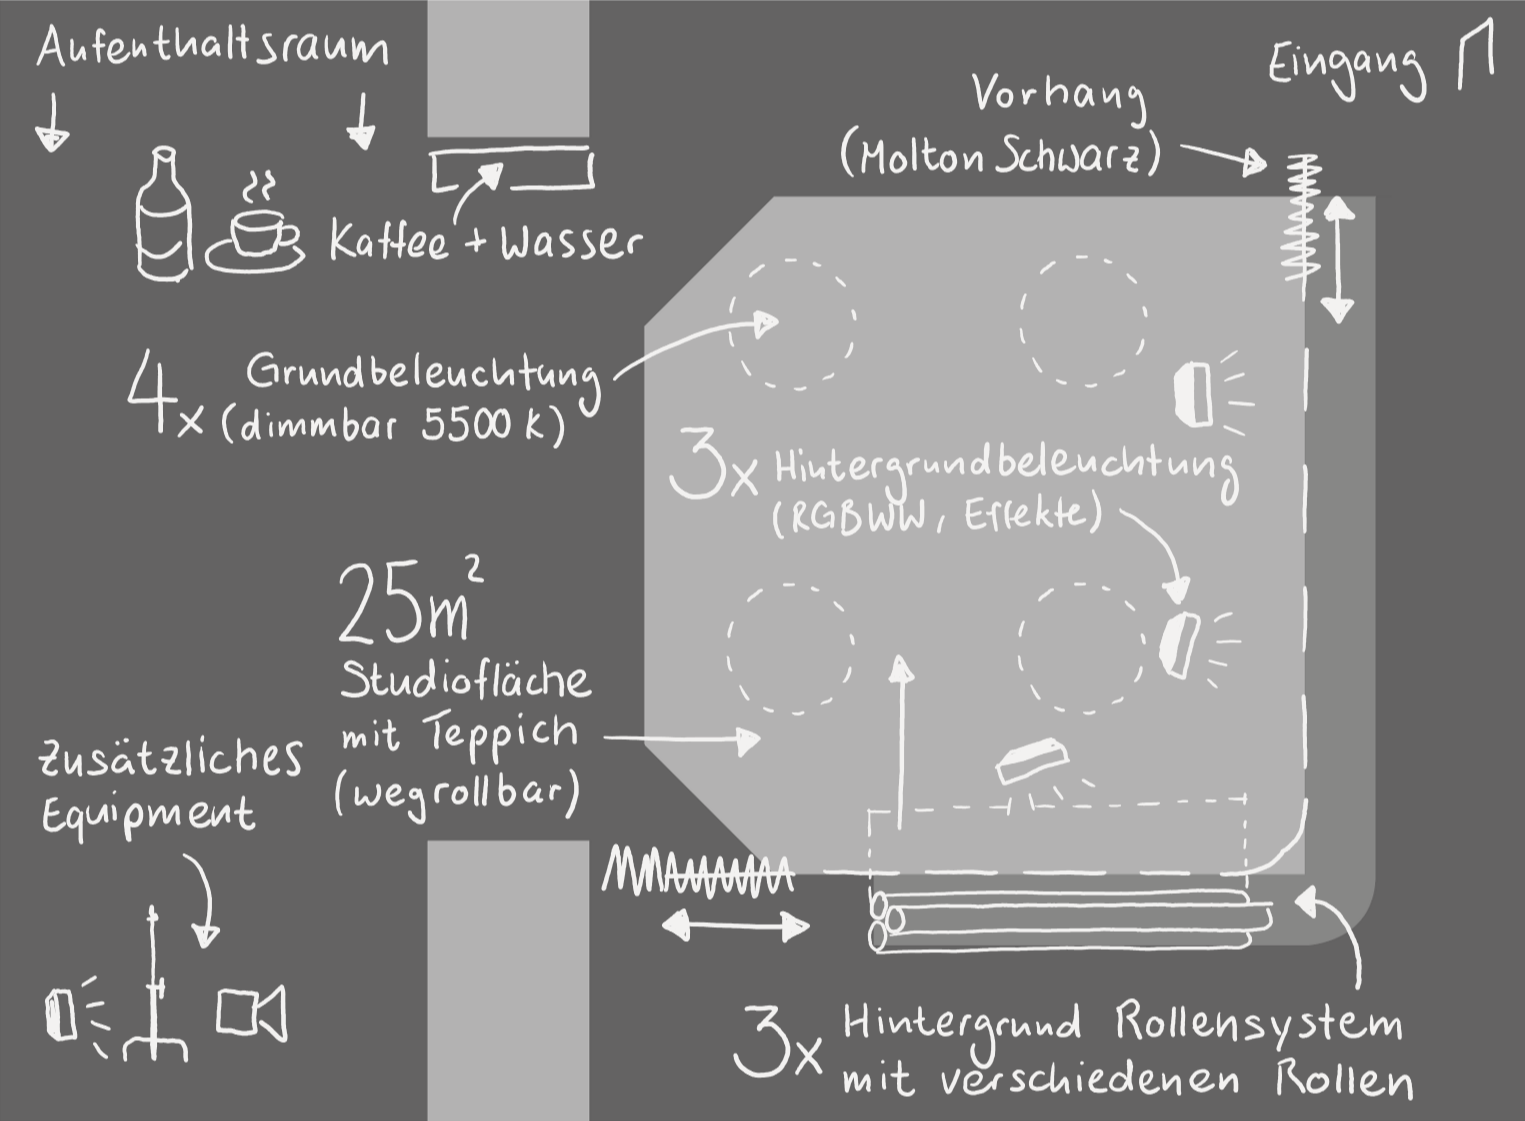 Aufenthaltsraum
Eingang
Vorhang
(Molton Schwarz)
Kaffee + Wasser
4x Grundbeleuchtung
(dimmbar 5500 k)
3x Hintergrundbeleuchtung
(RGBWW, Effekte)
25m²
Studiofläche
mit Teppich
(wegrollbar)
Zusätzliches
Equipment
3x Hintergrund Rollensystem
mit verschiedenen Rollen